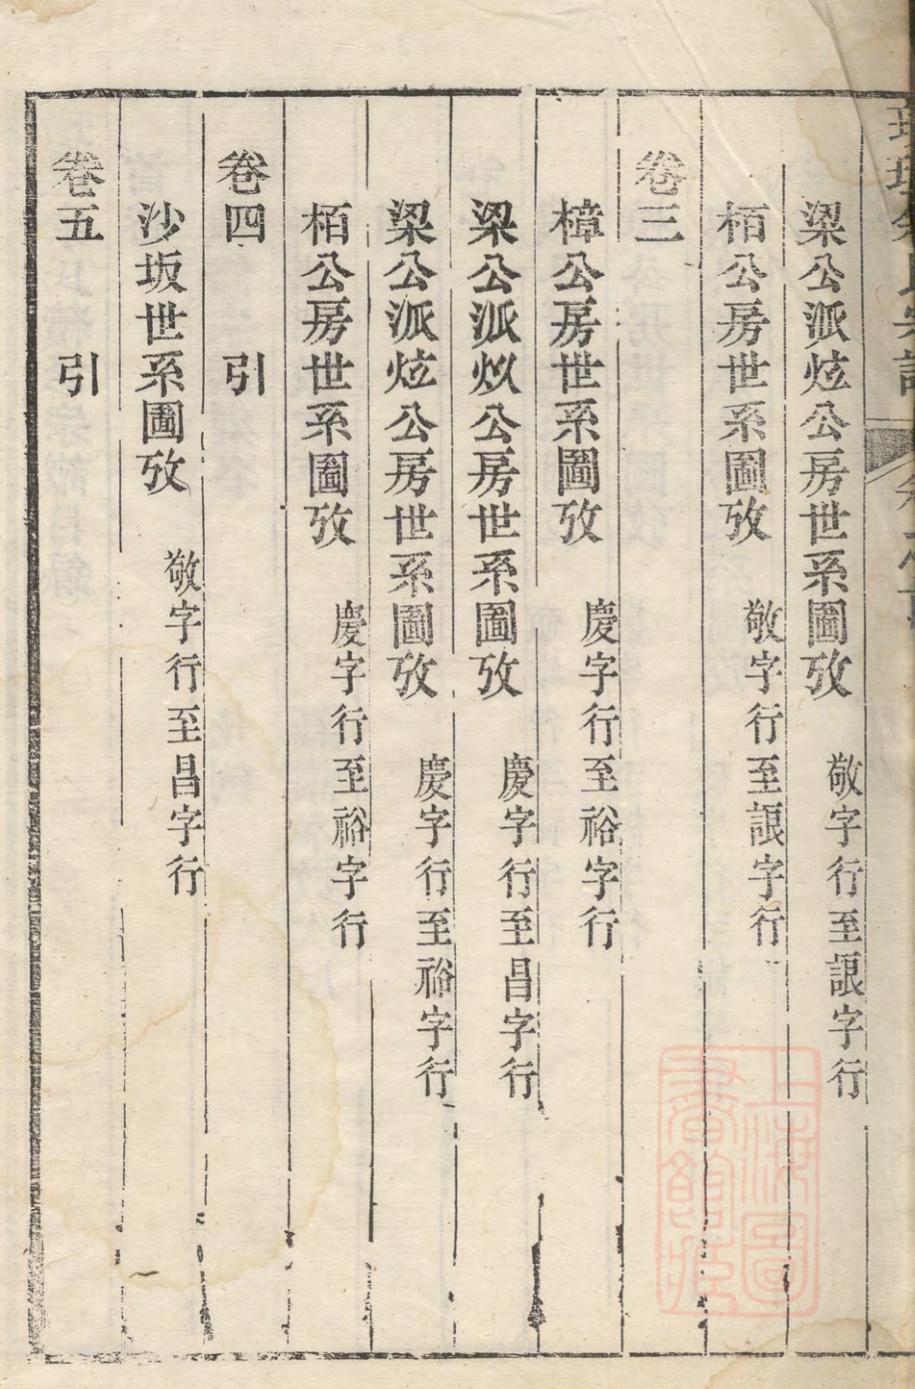 梁公派炫公房世系圖攷　敬字行至詪字行
栢公房世系圖攷　敬字行至詪字行
卷三
樟公房世系圖攷　慶字行至裕字行
梁公派炏公房世系圖攷　慶字行至昌字行
梁公派炫公房世系圖攷　慶字行至裕字行
栢公房世系圖攷　慶字行至裕字行
卷四　引
沙坂世系圖攷　敬字行至昌字行
卷五　引
上海圖書館藏